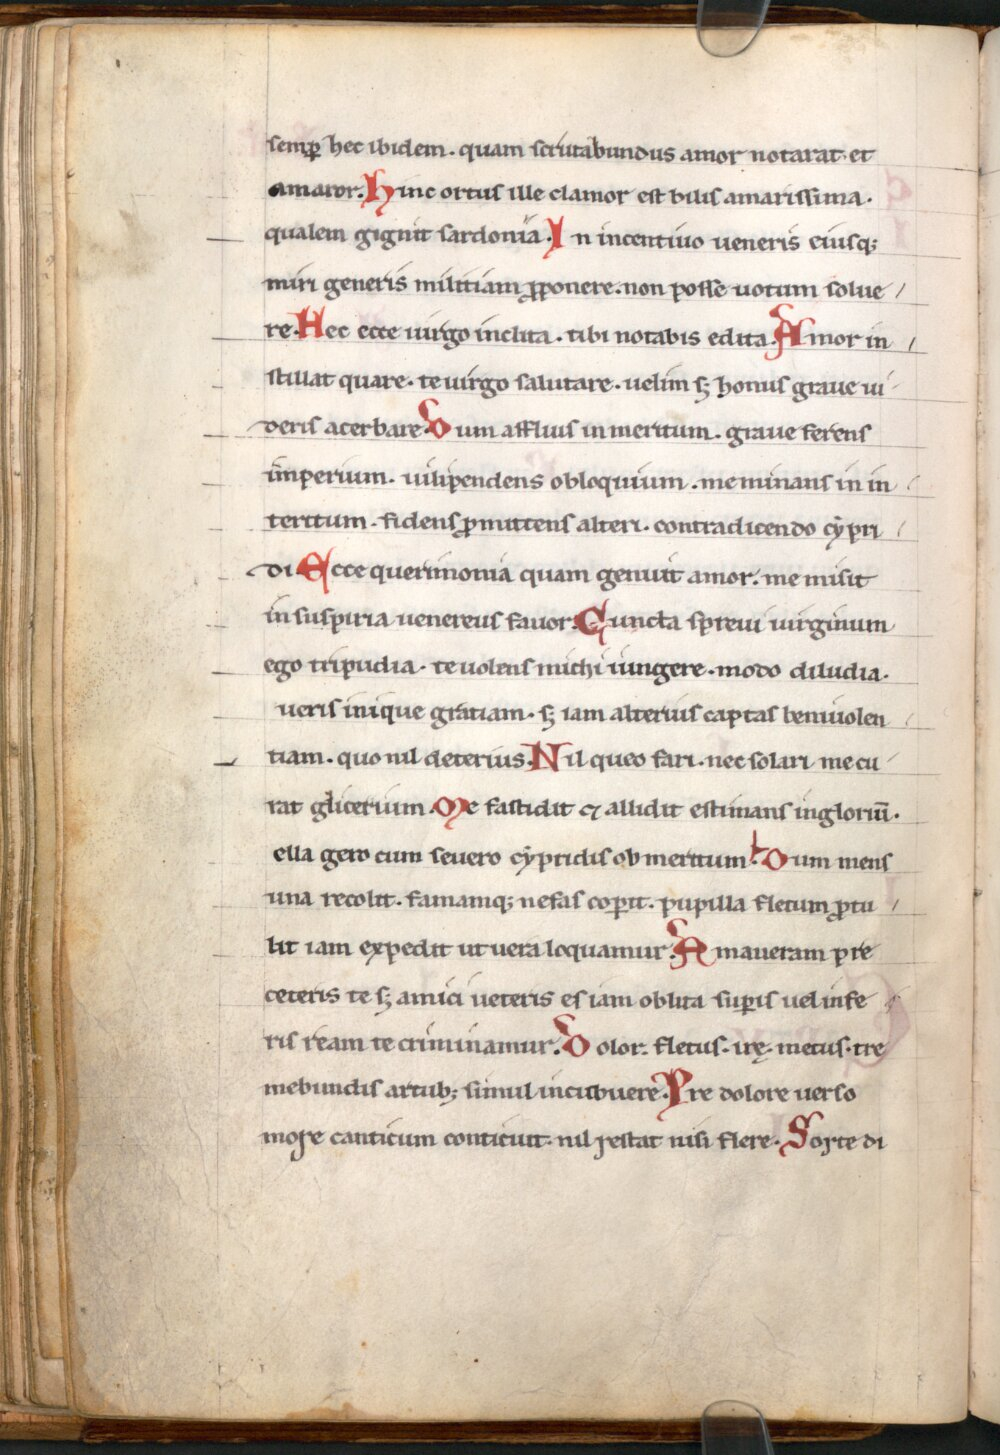 semꝑ hec ibidem. quam scrutabundus amor notarat. et
amaror. Hinc ortus ille clamor est bilis amarissima.
qualem gignit sardonia. In incentiuo ueneris eiusq;
miri generis militiam ꝓponere. non posse uotum solue
re. Hec ecce uirgo inclita. tibi notabis edita. Amor in
stillat quare. te uirgo salutare. uelim sꝫ honus graue ui
deris acerbare. Dum affluis in meritum. graue ferens
imperium. uilipendens obloquium. me minans in in
teritum. fidens ꝓmittens alteri. contradicendo cypri
di. Ecce querimonia quam genuit amor. me misit
in suspiria uenereus fauor. Cuncta spreui uirginum
ego tripudia. te uolens michi iungere. modo diludia.
ueris inique gratiam. sꝫ iam alterius captas beniuolen
tiam. quo nil deterius. Nil queo fari. nec solari me cu
rat glicerium. Me fastidit & allidit estimans ingloriū.
ella gero cum seuero cypridis ob meritum. Dum mens
una recolit. famamq; nefas coꝑit. pupilla fletum ꝓtu
lit iam expedit ut uera loquamur. Amaueram pre
ceteris te sꝫ amici ueteris es iam oblita suꝑis uel infe
ris ream te criminamur. Dolor. fletus. irę. metus. tre
mebundis artubꝫ simul incubuere. Pre dolore uerso
more canticum conticuit. nil restat nisi flere. Sorte di